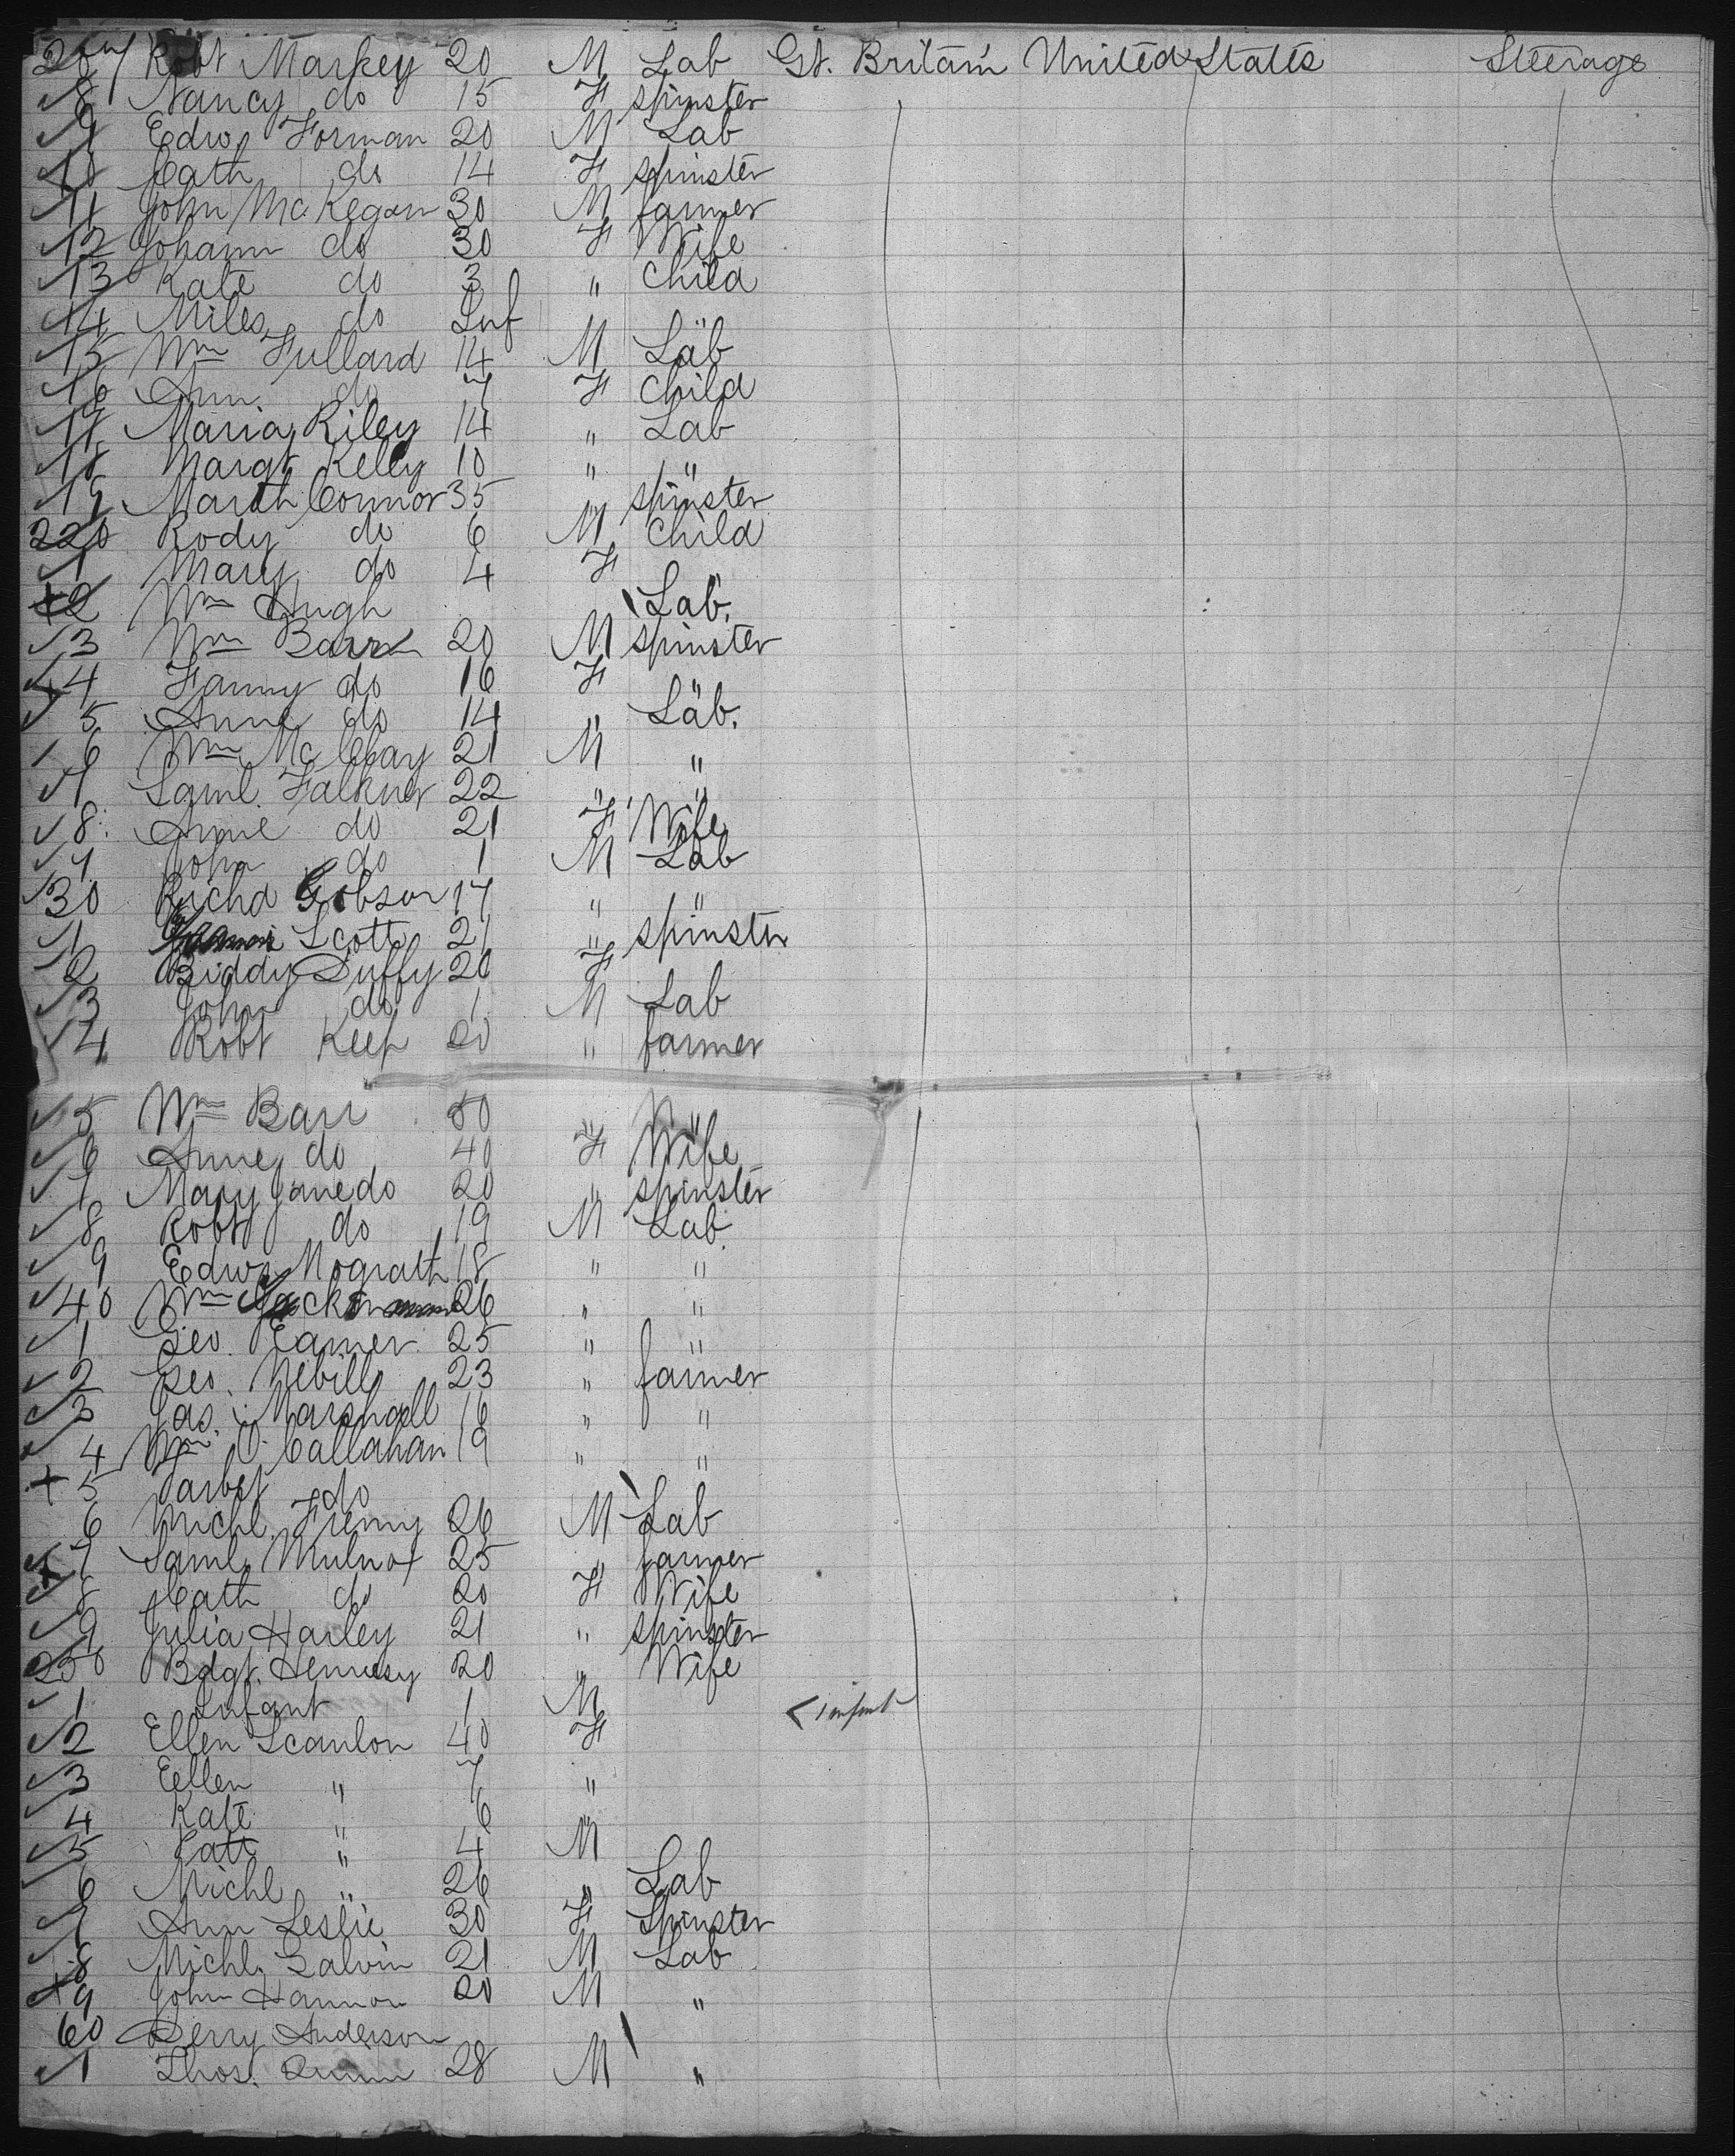 207 Robt Markey 20 M Lab Gt. Britain United States Steerage
8 Nancy do 15 F spinster
9 Edwd Forman 20 M Lab
10 Cath do 14 F spinster
11 John McKegan 30 M farmer
12 Johann do 30 F Wife
13 Kate do 3 " Child
14 Miles do Inf "
15 Wm Fullard 14 M Lab
16 Ann do 7 F Child
17 Maria Riley 14 " Lab
18 Margt Kelly 10 " "
19 Marth Connor 35 " spinster
220 Rody do 6 M Child
1 Mary do 4 F "
2 Wm Hugh Lab.
3 Wm Barr 20 M spinster
4 Fanny do 16 F "
5 Anne do 14 " Lab.
6 Wm McCay 21 M "
7 Saml. Falkner 22 " "
8 Anne do 21 F Wife
9 John do 1 M Lab
30 Richd Gibson 17 " "
1 Scott 21 " spinster
2 Biddy Duffy 20 F "
3 John do 1 M Lab
4 Robt Keep 20 " farmer
5 Wm Barr 50 " "
6 Anne do 40 F Wife
7 Mary Jane do 20 " spinster
8 Robt do 19 M Lab
9 Edwd Mograth 18 " "
40 Wm 26 " "
1 Geo. Eamer 25 " "
2 Geo. Nebill 23 " farmer
3 Jas. Marshall 16 " "
4 Wm O. Callahan 19 " "
5 do
6 Michl. 26 M Lab
7 Saml. 25 farmer
8 Cath do 20 F Wife
9 Julia Harley 21 " spinster
250 Bdgt. Hennesy 20 " Wife
1 Infant 1 M < infant
2 Ellen Scanlon 40 F
3 Eellen " 7 "
4 Kate " 6 "
5 Patt " 4 M
6 Michl " 26 " Lab
7 Ann Leslie 30 F Spinster
8 Michl. Galvin 21 M Lab
9 John Hannon 20 M "
60 Derry Anderson
1 Thos. Quinn 28 M "